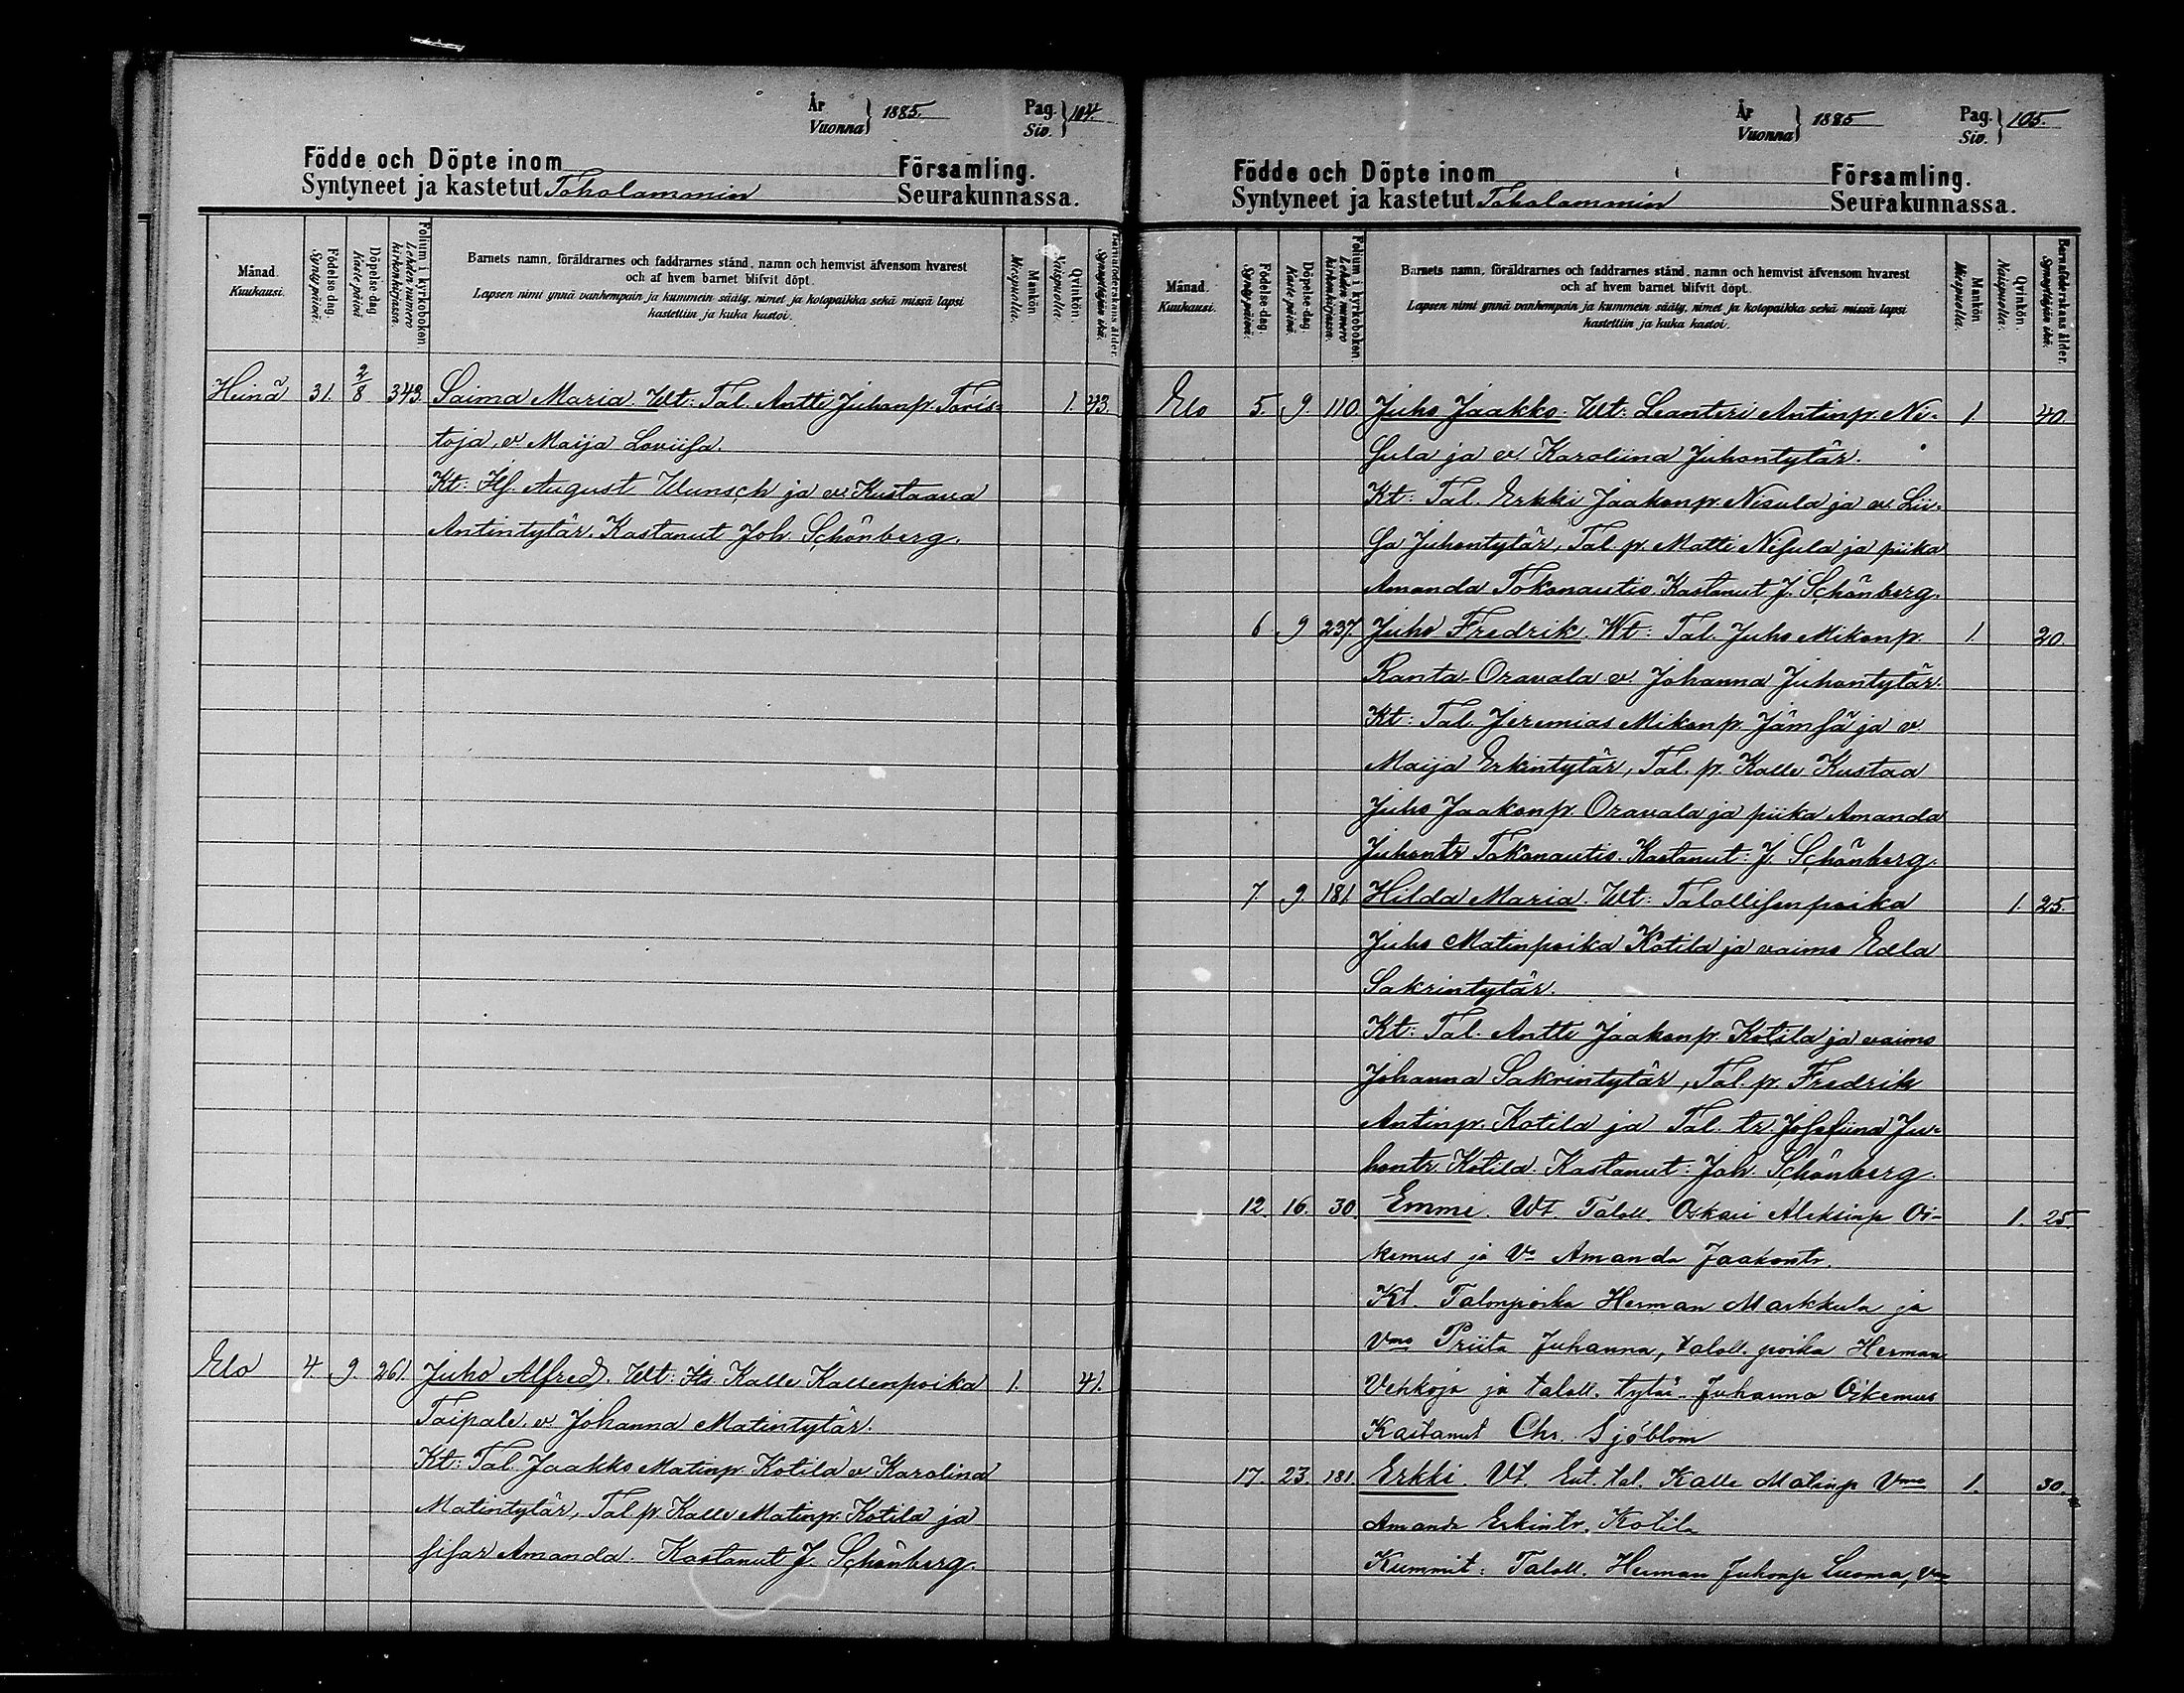 År
Vuonna } 1885.
Pag.
Siv. } 104.
Födde och Döpte inom Församling.
Syntyneet ja kastetut Toholammin Seurakunnassa.
Månad. Kuukausi.
Födelse-dag. Synty-päivä.
Döpelse-dag. Kaste-päivä
Folium i kyrkoboken. Lehden numero kirkonkirjassa.
Barnets namn, föräldrarnes och faddrarnes stånd, namn och hemvist äfvensom hvarest
och af hvem barnet blifvit döpt.
Lapsen nimi ynnä vanhempain ja kummein sääty, nimet ja kotopaikka sekä missä lapsi
kastettiin ja kuka kastoi.
Mankön Miespuolia.
Qvinkön. Naispuolia.
Barnaföderskans ålder. Synnyttäjän ikä.
Heinä 31. 2/8 343. Saima Maria. Wt: Tal. Antti Juhonp. Taris= 1. 23.
toja, v. Maija Loviisa.
Kt: Hf. August Wunsch ja v. Kustaava
Antintytär. Kastanut Joh. Schönberg.
Elo 4. 9. 261. Juho Alfred. Wt: Its. Kalle Kallenpoika 1. 41.
Taipale, v. Johanna Matintytär.
Kt: Tal. Jaakko Matinp. Kotila v. Karolina
Matintytär, Tal. p. Kalle Matinp. Kotila ja
sisar Amanda. Kastanut J. Schönberg.
År
Vuonna } 1885
Pag.
Siv. } 105.
Födde och Döpte inom Församling.
Syntyneet ja kastetut Toholammin Seurakunnassa.
Månad. Kuukausi.
Födelse-dag. Synty-päivä.
Döpelse-dag. Kaste-päivä.
Folium i kyrkoboken. Lehden numero kirkonkirjassa.
Barnets namn, föräldrarnes och faddrarnes stånd, namn och hemvist äfvensom hvarest
och af hvem barnet blifvit döpt.
Lapsen nimi ynnä vanhempain ja kummein sääty, nimet ja kotopaikka sekä missä lapsi
kastettiin ja kuka kastoi.
Mankön Miespuolia.
Qvinkön. Naispuolia.
Barnaföderskans ålder. Synnyttäjän ikä.
Elo 5. 9. 110. Juho Jaakko. Wt: Leanteri Antinp. Ni= 1 40.
sula ja v. Karoliina Juhontytär.
Kt: Tal. Erkki Jaakonp. Nisula ja v. Lii=
sa Juhontytär, Tal. p. Matti Nisula ja piika
Amanda Tokonautio. Kastanut J. Schönberg.
6 9 237. Juho Fredrik. Wt: Tal. Juho Mikonp. 1. 20.
Ranta-Oravala v. Johanna Juhontytär.
Kt: Tal. Jeremias Mikonp. Jämsä ja v.
Maija Erkintytär, Tal. p. Kalle Kustaa
Juho Jaakonp. Oravala ja piika Amanda
Juhontr Tokonautio. Kastanut: J. Schönberg.
7. 9. 181 Hilda Maria. Wt: Talollisenpoika 1. 25.
Juho Matinpoika Kotila ja vaimo Edla
Sakrintytär.
Kt: Tal. Antti Jaakonp. Kotila ja vaimo
Johanna Sakrintytär, Tal. p. Fredrik
Antinp. Kotila ja Tal. tr. Josefiina Ju=
hontr. Kotila. Kastanut: Joh. Schönberg.
12. 16. 30. Emmi. Wt. Taloll. Oskari Aleksinp Oi- 1. 25.
kemus ja Vo Amanda Jaakontr.
Kt. Talonpoika Herman Markkula ja
Vmo Priita Juhanna, taloll. poika Herman
Vehkoja ja taloll. tytär Juhanna Oikemus
Kastanut Chr. Sjöblom
17. 23. 181. Erkki. Vt. Ent. tal. Kalle Matinp Vmo 1. 30.
Amanda Erkintr. Kotila
Kummit: Taloll. Herman Juhonp Luoma, Vmo